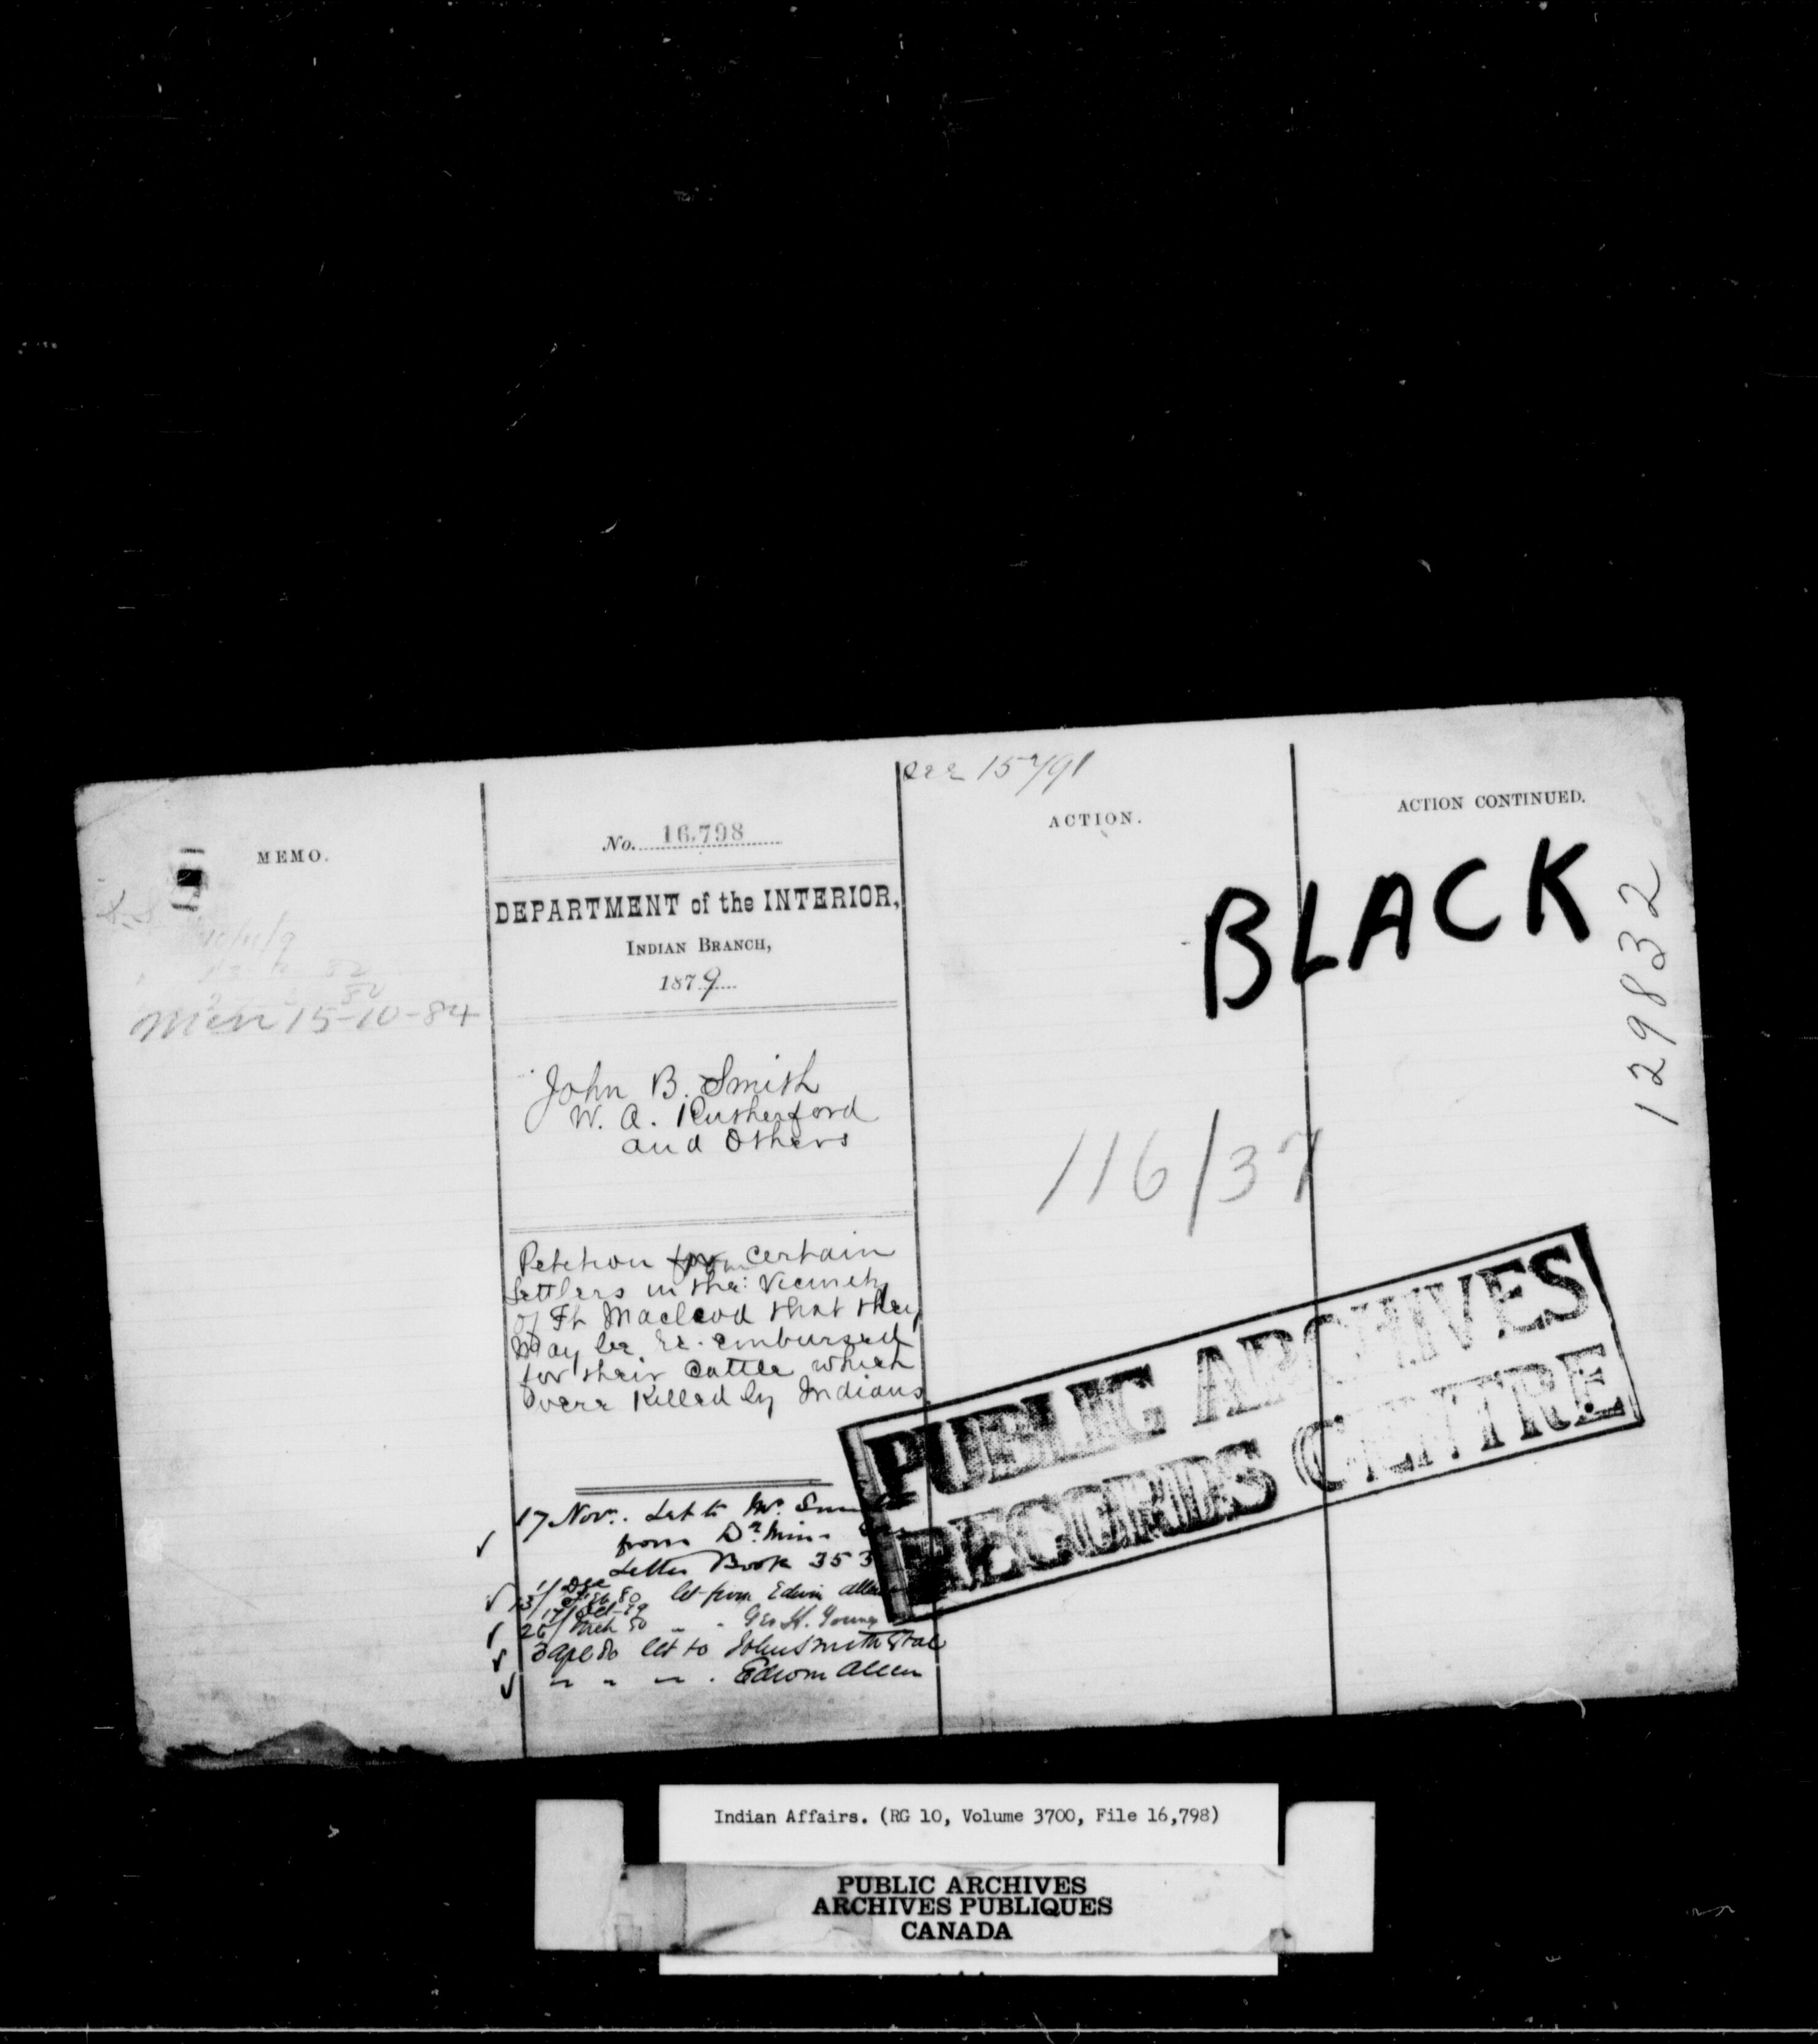 MEMO.
Mem 15-10-84
No. 16,798
DEPARTMENT of the INTERIOR,
INDIAN BRANCH,
1879
John B. Smith
W. A. Rutherford
and Others
Petition from certain
Settlers in the: Vicinety
of Ft Macleod that they
May be re-embursed
for their Cattle which
were Killed by Indians
17 Nov. Let to Mr.
from Dr. Min.
Letter Book 353
let from Edwin Allen
26/ Mch 80 " " Geo H. Young
3 Apl 80 let to John Smith et al
" " " . Edwin Allen
see 15791
ACTION.
116/37
ACTION CONTINUED.
BLACK
129832
PUBLIC ARCHIVES
RECORDS CENTRE
Indian Affairs. (RG 10, Volume 3700, File 16,798)
PUBLIC ARCHIVES
ARCHIVES PUBLIQUES
CANADA